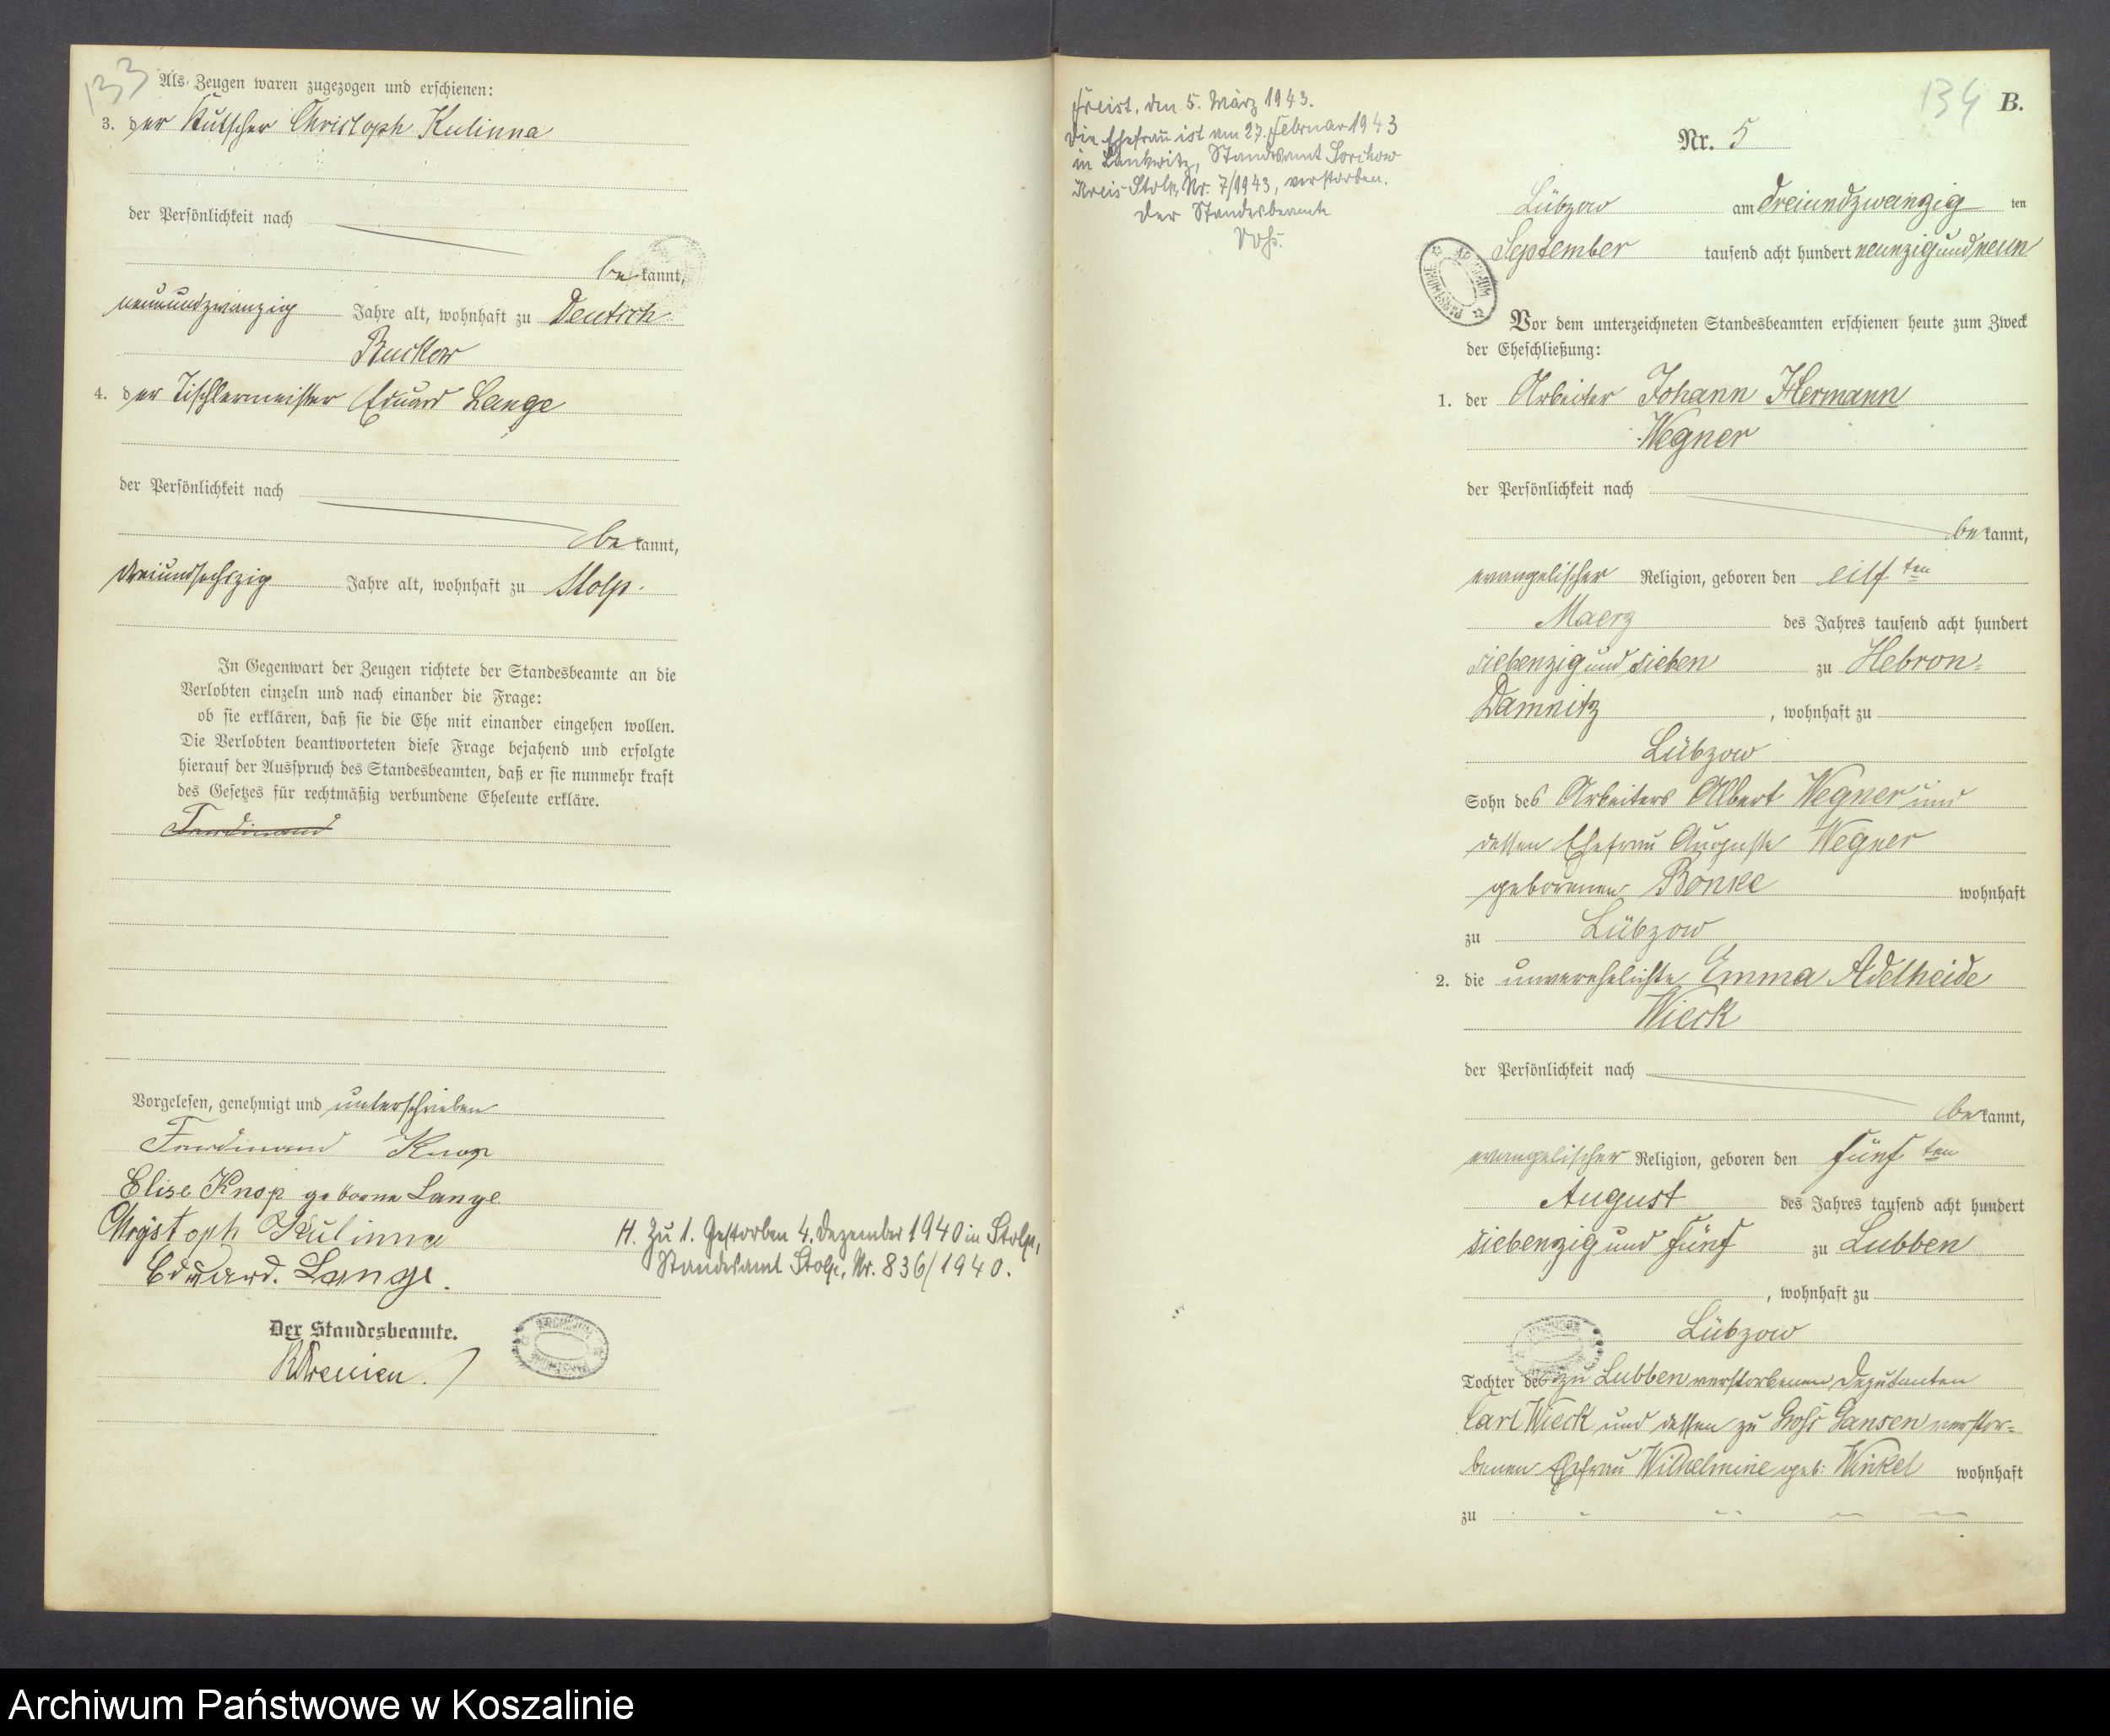 133
Als Zeugen waren zugezogen und erschienen:
3. der Kutscher Christoph Kulinna
der Persönlichkeit nach
be kannt,
neunundzwanzig Jahre alt, wohnhaft zu Deutsch
Buckow
4. der Tischlermeister Eduard Lange
der Persönlichkeit nach
be kannt,
dreiundsechszig Jahre alt, wohnhaft zu Stolp.
In Gegenwart der Zeugen richtete der Standesbeamte an die
Verlobten einzeln und nach einander die Frage:
ob sie erklären, daß sie die Ehe mit einander eingehen wollen.
Die Verlobten beantworteten diese Frage bejahend und erfolgte
hierauf der Ausspruch des Standesbeamten, daß er sie nunmehr kraft
des Gesetzes für rechtmäßig verbundene Eheleute erkläre.
Ferdinand
Vorgelesen, genehmigt und unterschrieben
Ferdinand Knop
Elise Knop geborne Lange
Christoph Kulinna
Eduard. Lange.
H. Zu 1. Gestorben 4. Dezember 1940 in Stolp,
Standesamt Stolp, Nr. 836/1940.
Der Standesbeamte.
ARCHIWUM
Freist, den 5. März 1943.
Die Ehefrau ist am 27. Februar 1943
in Lankwitz, Standesamt
Kreis Stolp, Nr. 7/1943, verstorben.
Der Standesbeamte
134 B.
Nr. 5
Lübzow am dreiundzwanzig ten
September tausend acht hundert neunzig und neun
ARCHIWUM PAŃSTWOWE
Vor dem unterzeichneten Standesbeamten erschienen heute zum Zweck
der Eheschließung:
1. der Arbeiter Johann Hermann
Wegner
der Persönlichkeit nach
be kannt,
evangelischer Religion, geboren den eilf ten
Maerz des Jahres tausend acht hundert
siebenzig und sieben zu Hebron-
Damnitz, wohnhaft zu
Lübzow
Sohn des Arbeiters Albert Wegner und
dessen Ehefrau Auguste Wegner
geborenen Bonke wohnhaft
zu Lübzow
2. die unverehelichte Emma Adelheide
Wieck
der Persönlichkeit nach
be kannt,
evangelischer Religion, geboren den fünf ten
August des Jahres tausend acht hundert
siebenzig und fünf zu Lubben
, wohnhaft zu
Lübzow
Tochter des zu Lubben verstorbenen Deputanten
Carl Wieck und dessen zu Groß Gansen verstor-
benen Ehefrau Wilhelmine geb: Winkel wohnhaft
zu
Archiwum Państwowe w Koszalinie